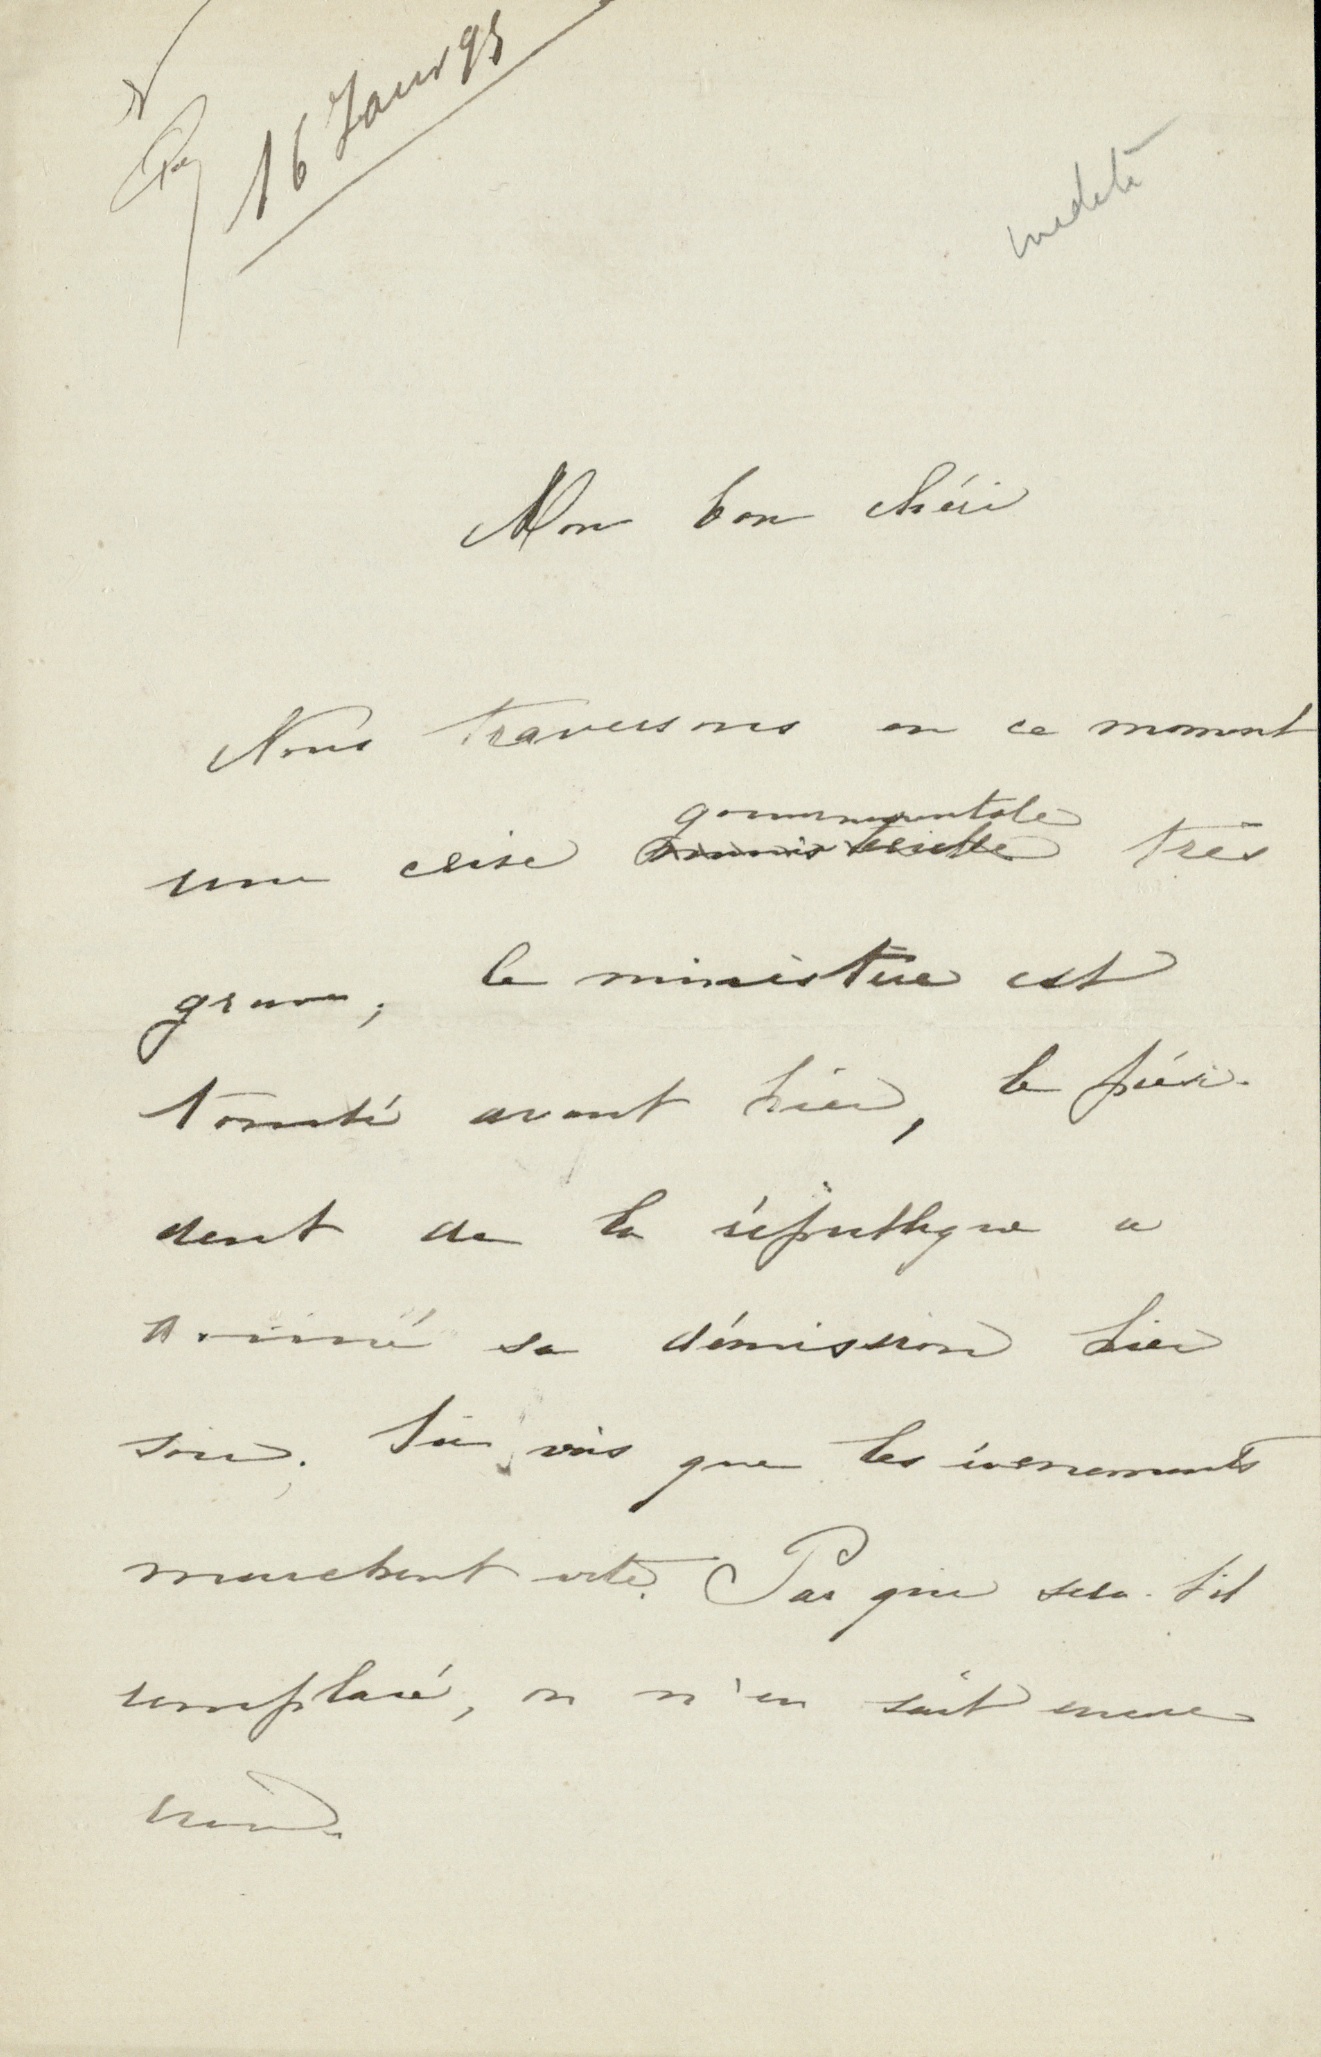 16 Janv 95
inedite
Mon bon chéri
Nous traversons en ce moment
gouvernementale
une crise ministerielle très
grave, le ministère est
tombé avant hier, le prési-
dent de la république a
donné sa démission hier
soir. Tu vois que les évenements
marchent vite. Par qui sera-t'il
remplacé, on n'en sait encore
rien.